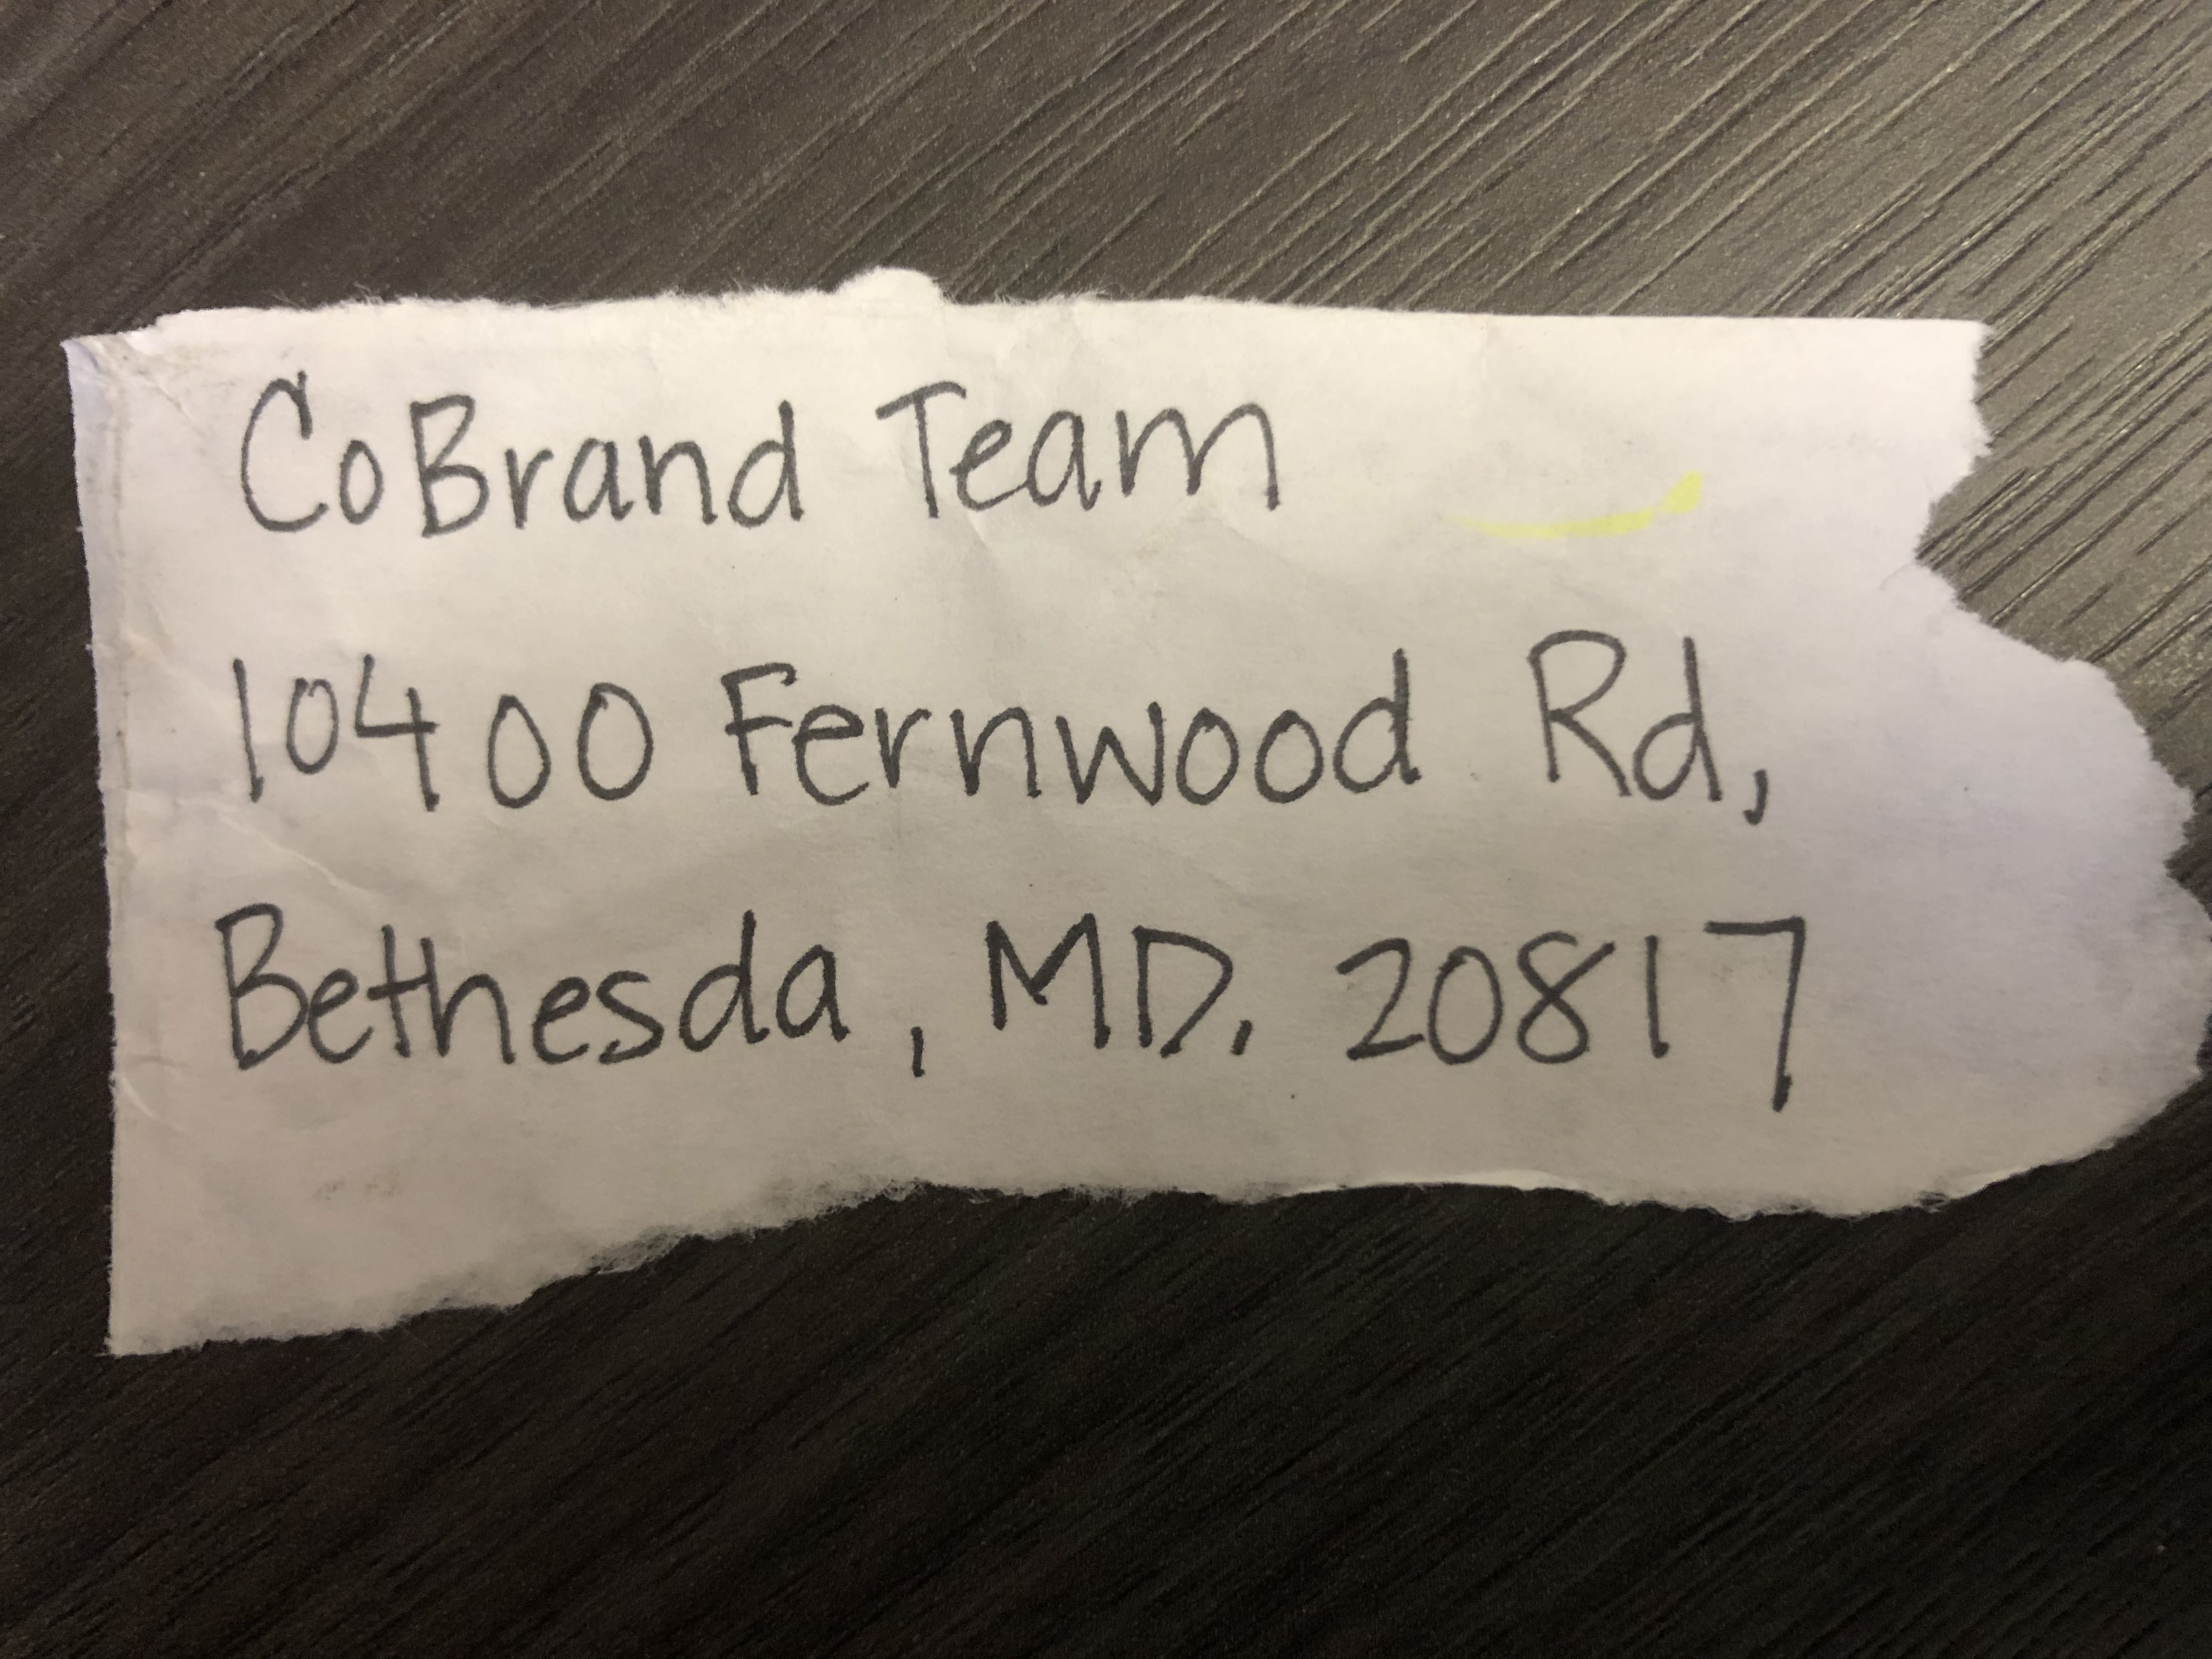 CoBrand Team
10400 Fernwood Rd,
Bethesda, MD, 20817